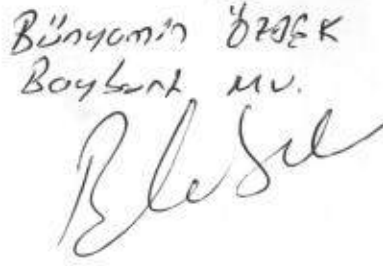 Bünyamin ÖZBEK
Bayburt MV.